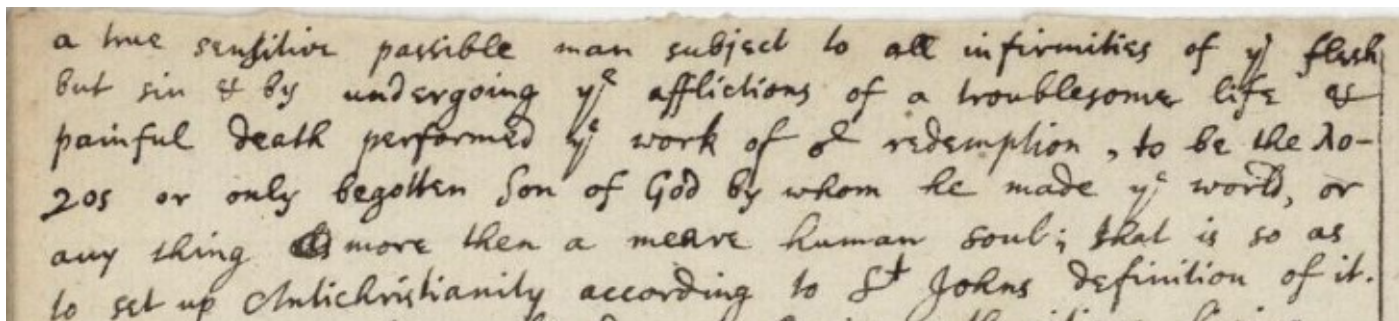 a true sensitive passible man subject to all infirmities of yᵉ flesh
but sin & by undergoing yᵉ afflictions of a troublesome life &
painful death performed yᵉ work of oʳ redemption, to be the λο-
γος or only begotten Son of God by whom he made yᵉ world, or
any thing more then a meere human soul; that is so as
to set up Antichristianity according to Sᵗ Johns definition of it.